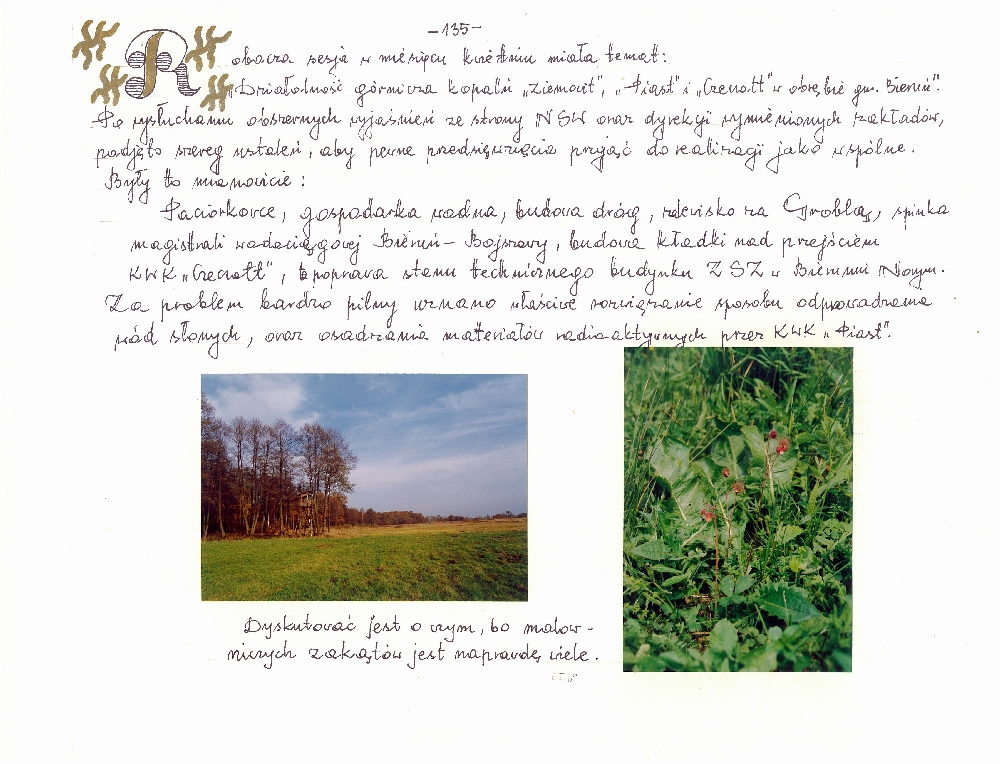 -135-
Robocza sesja w miesiącu kwietniu miała temat:
"Działalność górnicza kopalń „Ziemowit", „Piast" i „Czeczott" w obrębie gm. Bieruń".
Po wysłuchaniu obszernych wyjaśnień ze strony NSW oraz dyrekcji wymienionych zakładów,
podjęto szereg ustaleń, aby pewne przedsięwzięcia przyjąć do realizacji jako wspólne.
Były to mianowicie:
Paciorkowce, gospodarka wodna, budowa dróg, zalewisko za Groblą, spinka
magistrali wodociągowej Bieruń - Bojszowy, budowa kładki nad przejściem
KWK „Czeczott", poprawa stanu technicznego budynku ZSZ w Bieruniu Nowym.
Za problem bardzo pilny uznano właściwe rozwiązanie sposobu odprowadzania
wód słonych, oraz osadzania materiałów radioaktywnych przez KWK „Piast".
Dyskutować jest o czym, bo malow-
niczych zakątów jest naprawdę wiele.